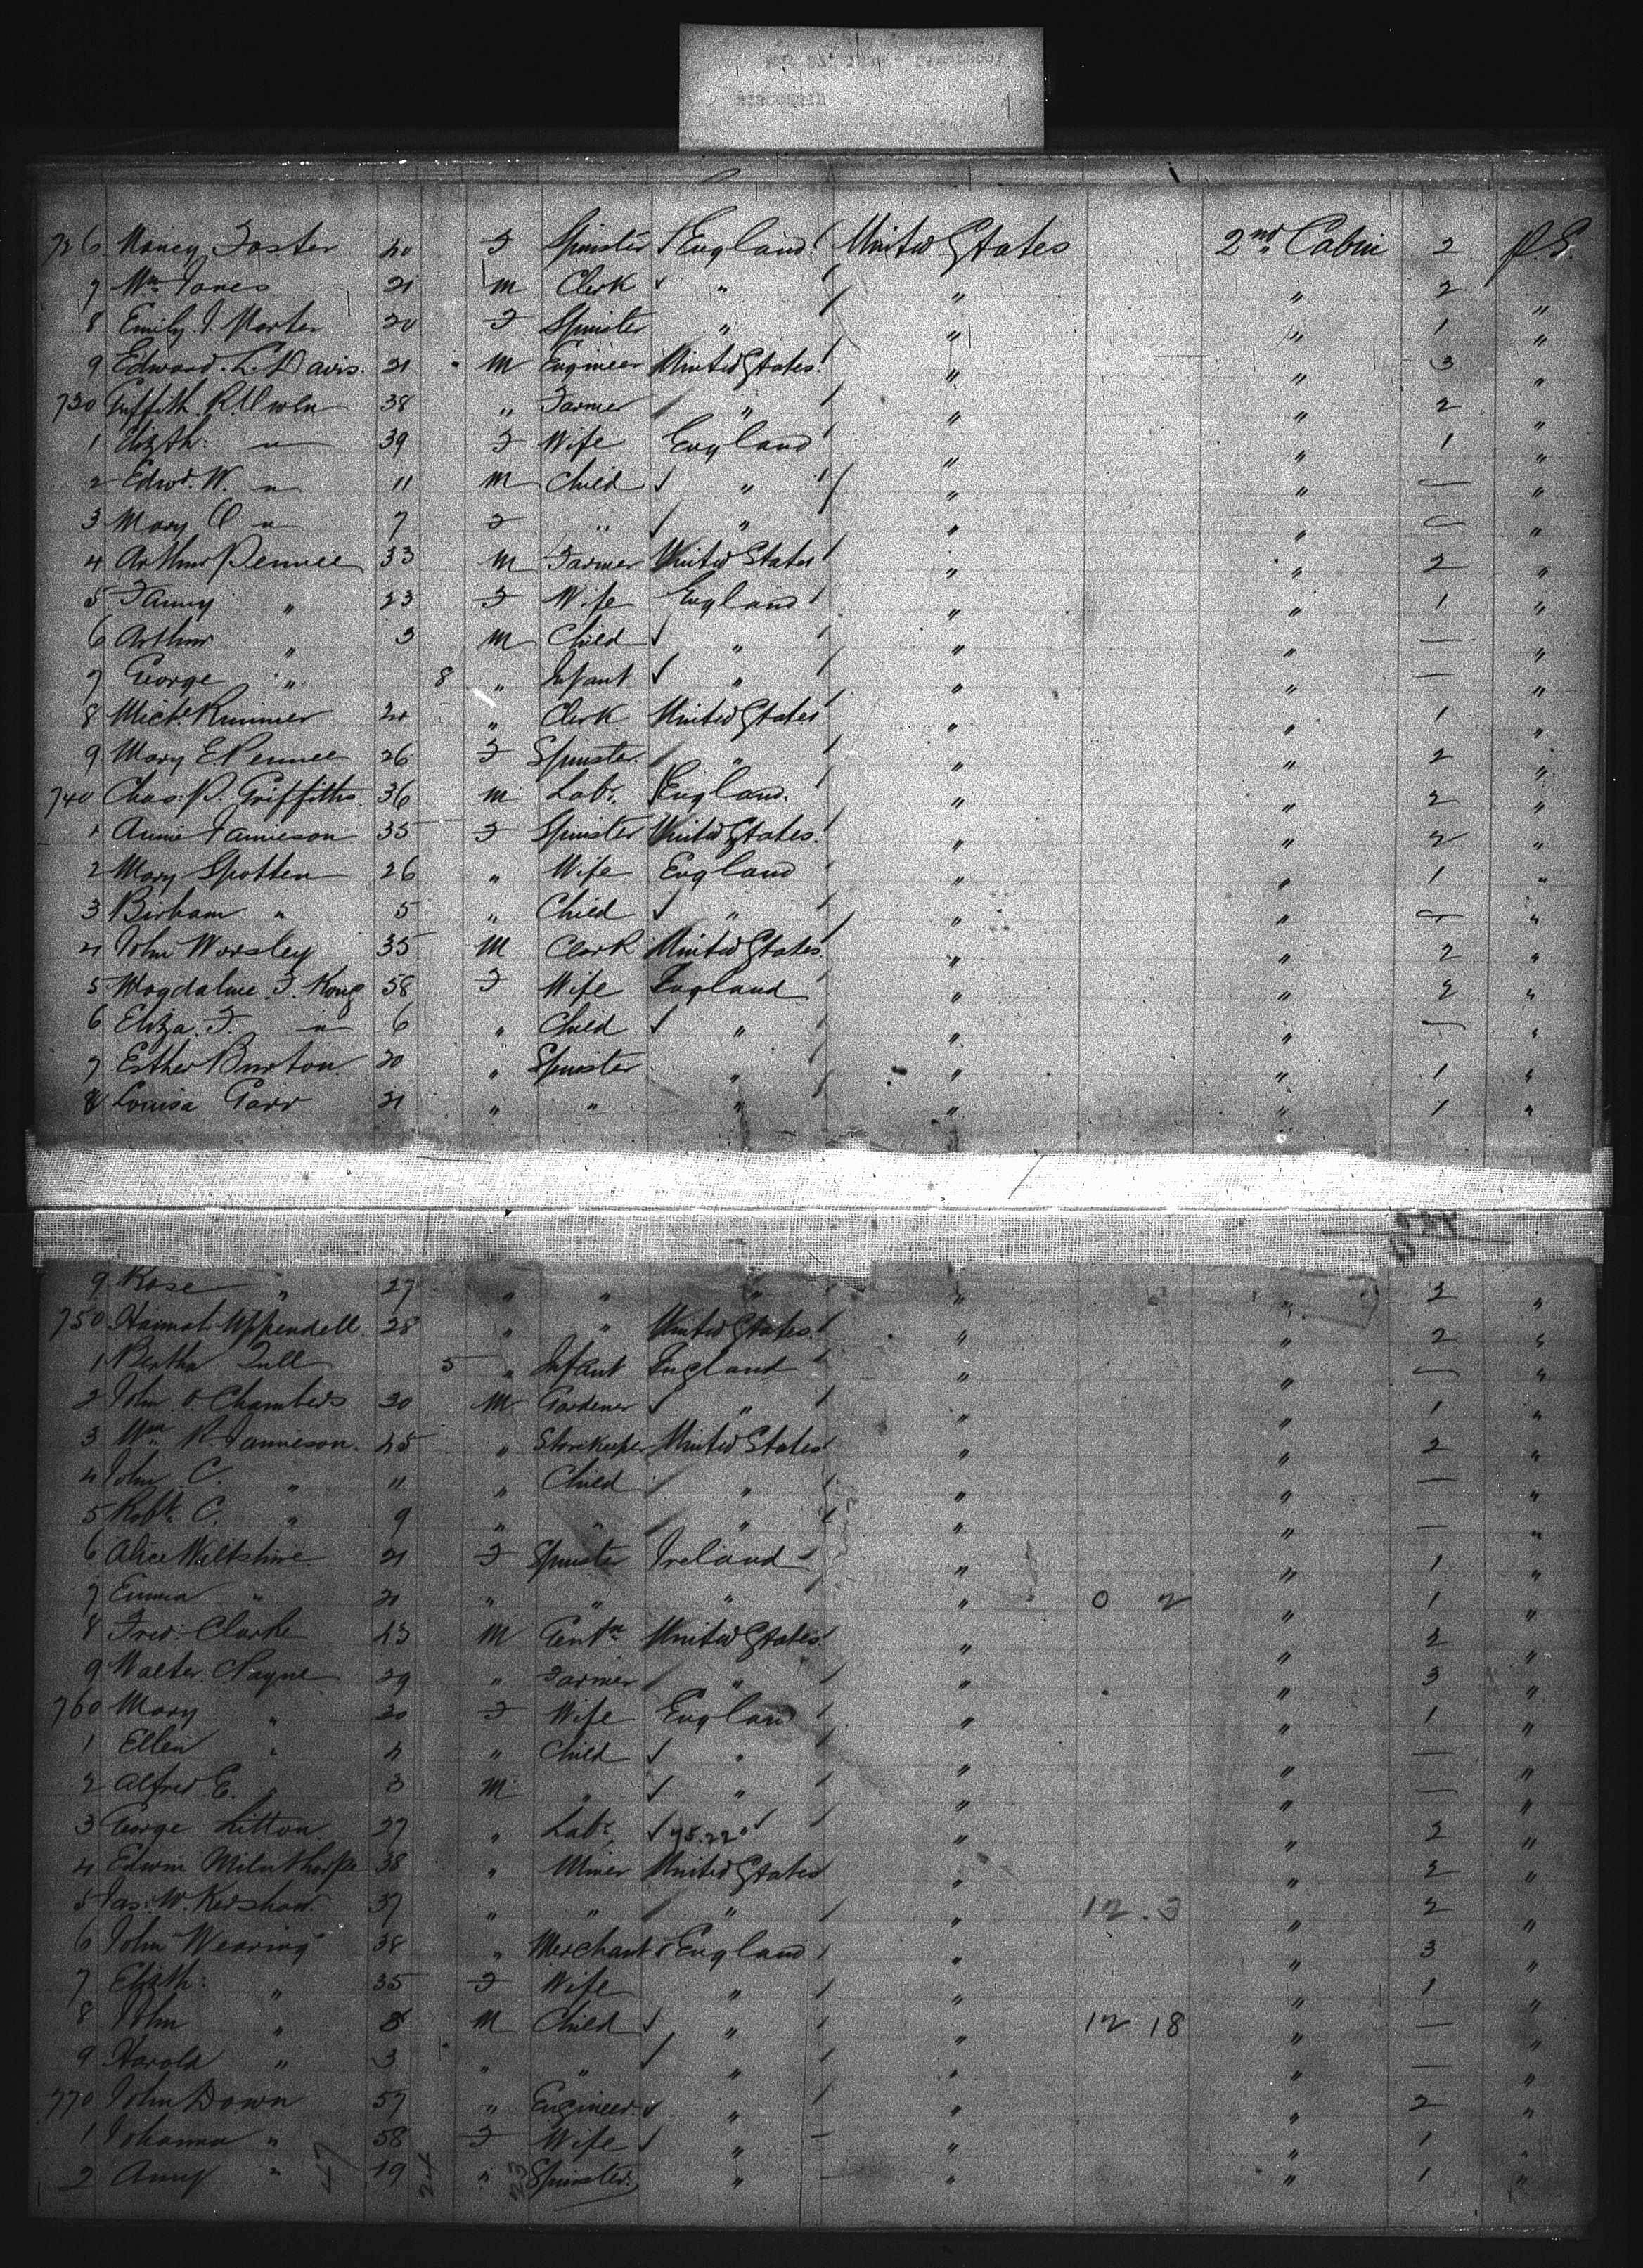 726 Nancy Foster 20 F Spinster England United States 2nd Cabin 2 P.E.
7 Wm Jones 21 M Clerk " " " 2 "
8 Emily J. Marter 20 F Spinster " " " 1 "
9 Edward L. Davis. 21 M Engineer United States " " 3 "
730 Griffith R. Owen 38 " Farmer " " " 2 "
1 Elizth: " 39 F Wife England " " 1 "
2 Edwd. W. " 11 M Child " " " — "
3 Mary O " 7 F " " " " — "
4 Arthur Pennee 33 M Farmer United States " " 2 "
5 Fanny " 23 F Wife England " " 1 "
6 Arthur " 3 M Child " " " — "
7 George " 8 " Infant " " " — "
8 Michl Rimmer 24 " Clerk United States " " 1 "
9 Mary E Pennee 26 F Spinster " " " 2 "
740 Chas: P. Griffiths. 36 M Labr. England. " " 2 "
1 Annie Jamieson 35 F Spinster United States. " " 2 "
2 Mary Spotten 26 " Wife England " " 1 "
3 Birham " 5 " Child " " " — "
4 John Worsley 35 M Clerk United States " " 2 "
5 Magdaline F. Kong 58 F Wife England " " 2 "
6 Eliza. F. " 6 " Child " " " — "
7 Esther Burton. 20 " Spinster " " " 1 "
8 Louisa Carr 21 " " " " " 1 "
9 Rose " 27 " " " " " 2 "
750 Hannah Uppendell. 28 " " United States. " " 2 "
1 Bertha Tull 5 " Infant England " " — "
2 John O. Chambers 30 M Gardener " " " 1 "
3 Wm R. Jamieson. 45 " Storekeeper United States " " 2 "
4 John C. " 11 " Child " " " — "
5 Robt. C. " 9 " " " " " — "
6 Alice Wiltshire 21 F Spinster Ireland " " 1 "
7 Emma " 21 " " " " 0 2 " 1 "
8 Fred: Clarke 43 M Gentn United States. " " 2 "
9 Walter Payne 29 " Farmer " " " 3 "
760 Mary " 30 F Wife England " " 1 "
1 Ellen " 4 " Child " " " — "
2 Alfred E. " 3 M " " " " — "
3 George Litton. 27 " Labr. " " 2 "
4 Edwin Milnthorpe 38 " Miner United States " " 2 "
5 Jas: W. Kershaw. 37 " " " " 12.3 " 2 "
6 John Wearing 38 " Merchant England " " 3 "
7 Elizth: " 35 F Wife " " " 1 "
8 John " 8 M Child " " 12 18 " — "
9 Harold " 3 " " " " " — "
770 John Down 57 " Engineer " " " 2 "
1 Johanna " 58 F Wife " " " 1 "
2 Amy " 19 " Spinster. " " " 1 "